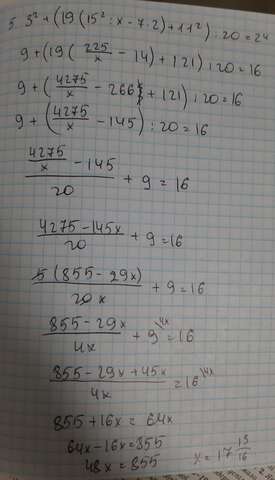 5. 3² + (19(15² : x - 7·2) + 11²) : 20 = 24
9 + (19(225/x - 14) + 121) : 20 = 16
9 + (4275/x - 266 + 121) : 20 = 16
9 + (4275/x - 145) : 20 = 16
(4275/x - 145)/20 + 9 = 16
(4275 - 145x)/20 + 9 = 16
5(855 - 29x)/20x + 9 = 16
(855 - 29x)/4x + 9^4x = 16
(855 - 29x + 45x)/4x = 16^4x
855 + 16x = 64x
64x - 16x = 855
48x = 855 x = 17 13/16